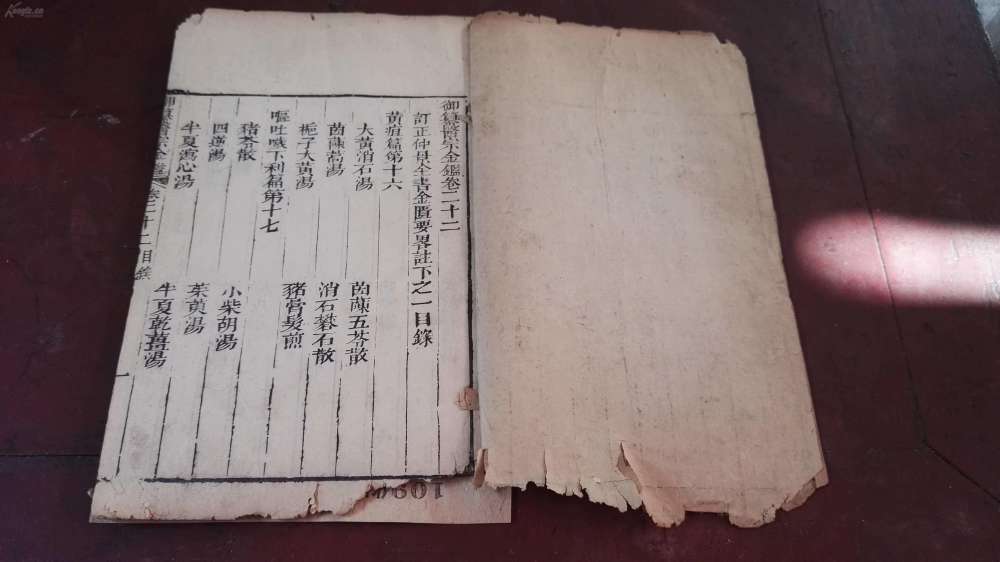 御纂醫宗金鑑卷二十二
訂正仲景全書金匱要畧註下之一目錄
黃疸篇第十六
大黃消石湯
茵蔯五苓散
茵蔯蒿湯
消石礬石散
梔子大黃湯
豬膏髮煎
嘔吐噦下利篇第十七
豬苓散
四逆湯
小柴胡湯
半夏瀉心湯
茱萸湯
半夏乾薑湯
御纂醫宗金鑑 卷二十二目錄
一
Kongfz.cn